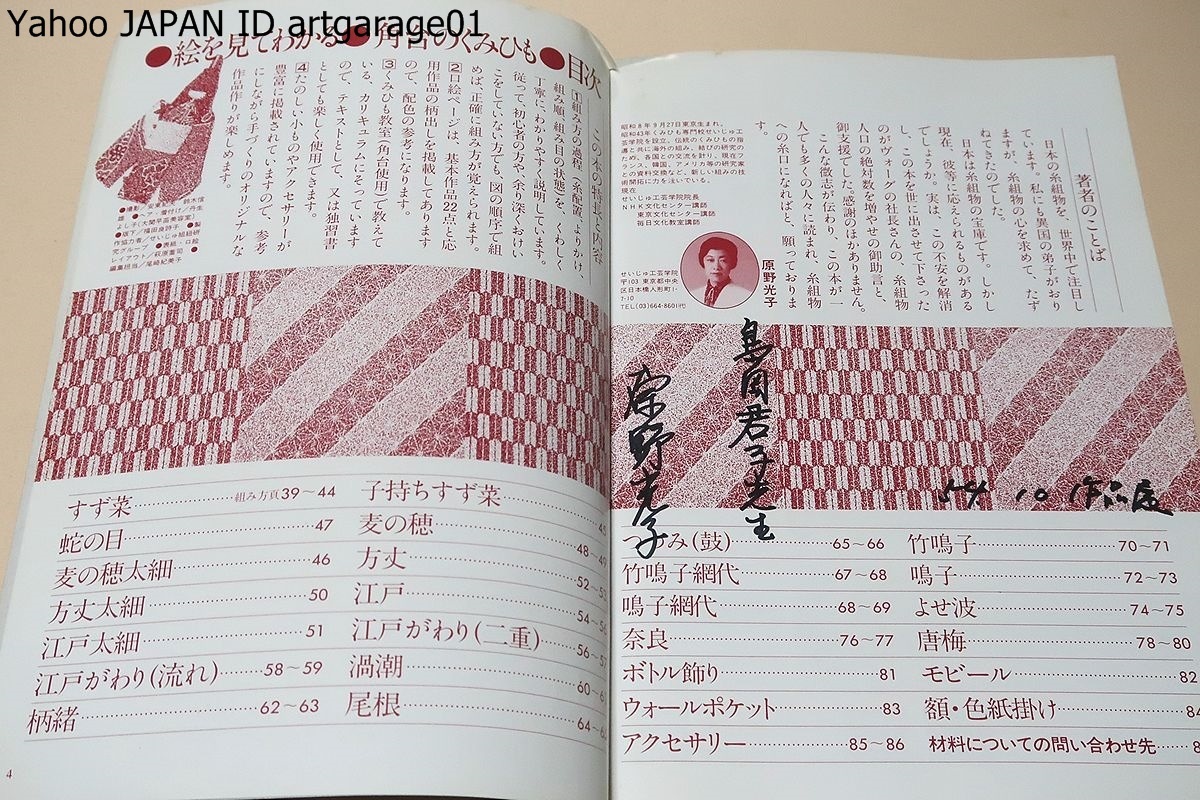 Yahoo JAPAN ID artgarage01
●絵を見てわかる●角台のくみひも●目次
この本の特長と内容
1 組み方の過程(糸配置、よりかけ、
組み順、組み目の状態)を、くわしく
丁寧に、わかりやすく説明しています。
従って、初心者の方や、余り深くおけい
こをしていない方でも、図の順序で組
めば、正確に組み方が覚えられます。
2 口絵ページは、基本作品22点と応
用作品の柄出しを掲載してあります
ので、配色の参考になります。
3 くみひも教室(角台使用)で教えて
いる、カリキュラムにそっています
ので、テキストとして、又は独習書
としても楽しく使用できます。
4 たのしい小ものやアクセサリーが
豊富に掲載されていますので、参考
にしながら手づくりのオリジナルな
作品作りが楽しめます。
すず菜 組み方頁39〜44
蛇の目 47
麦の穂太細 46
方丈太細 50
江戸太細 51
江戸がわり(流れ) 58〜59
柄緒 62〜63
子持ちすず菜
麦の穂 48〜49
方丈
江戸
江戸がわり(二重)
渦潮
尾根
4
著者のことば
日本の糸組物を、世界中で注目し
ています。私にも異国の弟子がおり
ますが、糸組物の心を求めて、たず
ねてきたのでした。
日本は糸組物の宝庫です。しかし
現在、彼等に応えられるものがある
でしょうか。実は、この不安を解消
し、この本を世に出させて下さった
のがヴォーグの社長さんの、糸組物
人口の絶対数を増やせの御助言と、
御支援でした。感謝のほかありません。
こんな微志が伝わり、この本が一
人でも多くの人々に読まれ、糸組物
への糸口になればと、願っておりま
す。
原野光子
昭和8年9月27日東京生まれ。
昭和43年くみひも専門校せいじゅ工
芸学院を設立、伝統のくみひもの指
導と共に海外の組み、結びの研究の
ため、各国との交流を計り、現在フ
ランス、韓国、アメリカ等の研究家
との資料交換など、新しい組みの技
術開拓に力を注いでいる。
現在
せいじゅ工芸学院院長
NHK文化センター講師
東京文化センター講師
毎日文化教室講師
せいじゅ工芸学院
〒103 東京都中央
区日本橋人形町1-
7-10
TEL(03)664-8601(代)
島岡君子先生
原野光子
54 10 作品展
つづみ(鼓) 65〜66
竹鳴子網代 67〜68
鳴子網代 68〜69
奈良 76〜77
ボトル飾り 81
ウォールポケット 83
アクセサリー 85〜86
竹鳴子 70〜71
鳴子 72〜73
よせ波 74〜75
唐梅 78〜80
モビール 82
額・色紙掛け
材料についての問い合わせ先